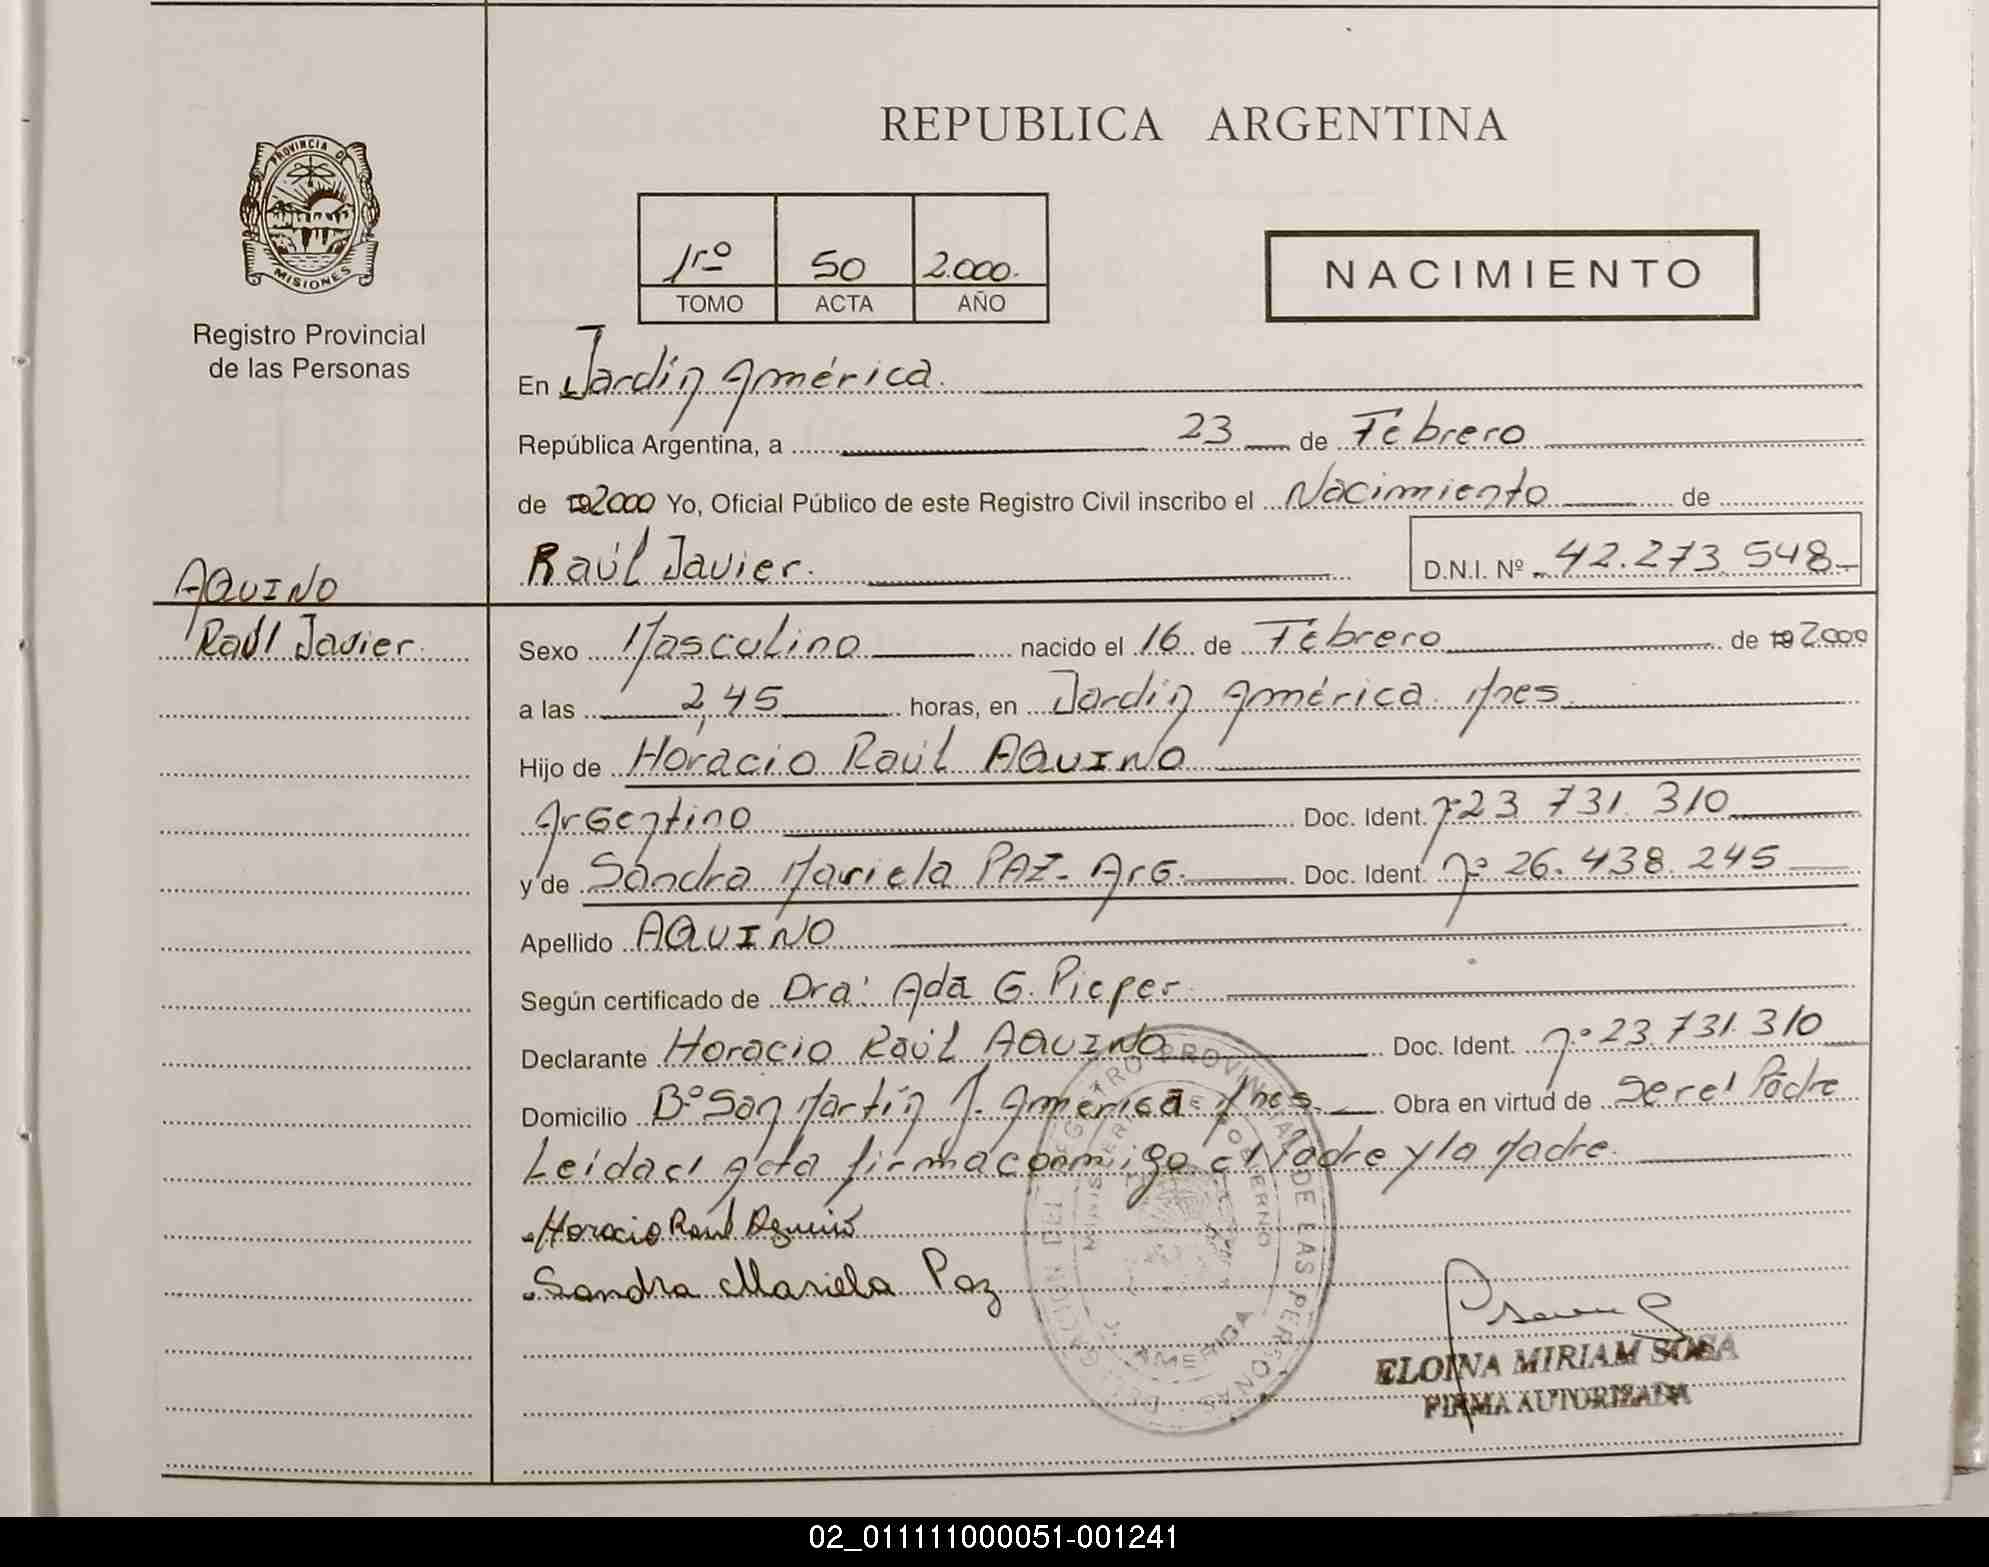 PROVINCIA DE
MISIONES
Registro Provincial
de las Personas
AQUINO
Raúl Javier.
REPUBLICA ARGENTINA
1rº 50 2.000.
TOMO ACTA AÑO
NACIMIENTO
En Jardín América.
República Argentina, a 23 de Febrero
de 192000 Yo, Oficial Público de este Registro Civil inscribo el Nacimiento de
Raúl Javier. D.N.I. Nº 42.273.548-
Sexo Masculino nacido el 16 de Febrero de 19 2.000
a las 2,45 horas, en Jardín América. Mnes.
Hijo de Horacio Raúl AQUINO
Argentino Doc. Ident. nº 23.731.310
y de Sandra Mariela PAZ- Arg. Doc. Ident. nº 26.438.245
Apellido AQUINO
Según certificado de Dra: Ada G. Pieper
Declarante Horacio Raúl AQUINO Doc. Ident. nº 23.731.310
Domicilio Bº San Martín J. América Mnes. Obra en virtud de ser el Padre
Leída el Acta firma conmigo el Padre y la Madre.
Horacio Raul Aquino
Sandra Mariela Paz
DELEGACION DEL REGISTRO PROVINCIAL DE LAS PERSONAS
MINISTERIO DE GOBIERNO
AMERICA
ELOINA MIRIAM SOSA
FIRMA AUTORIZADA
02_011111000051-001241